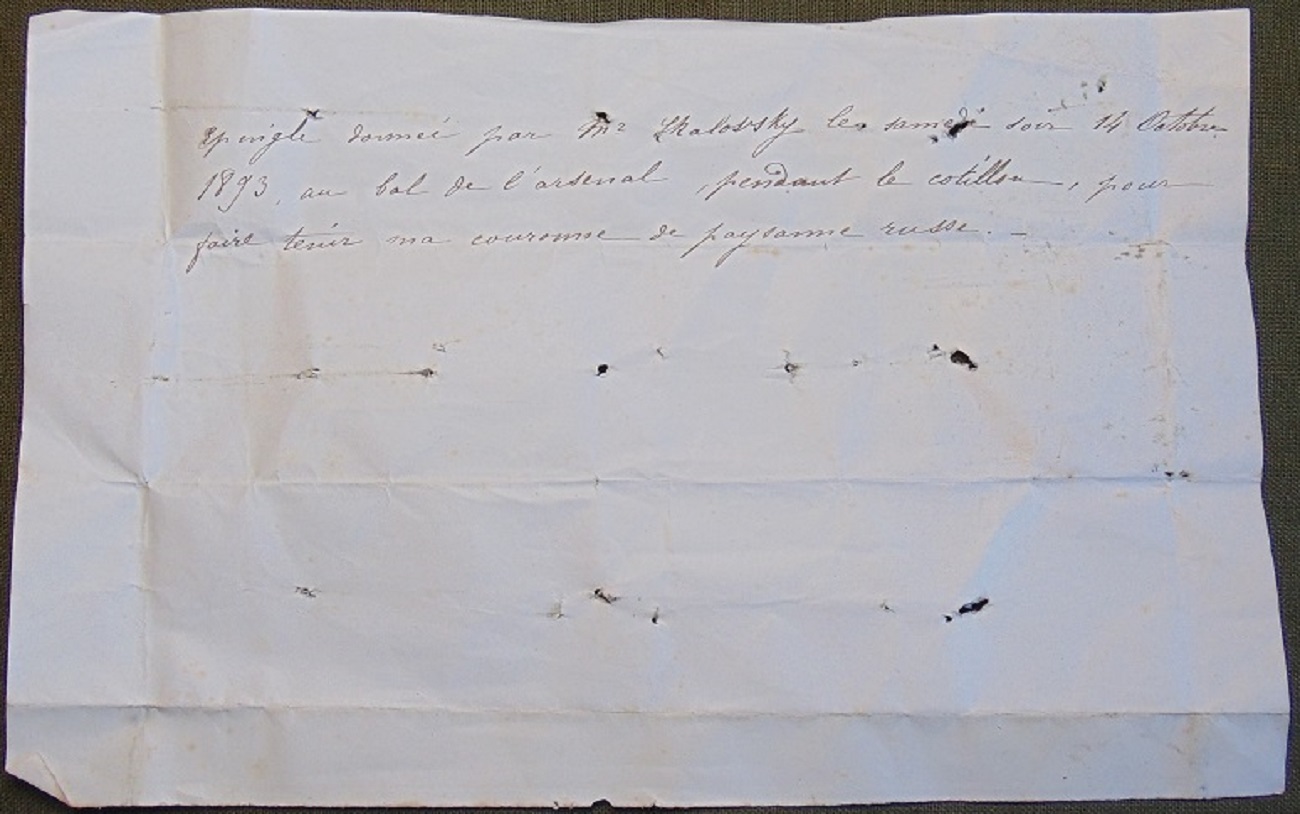 épingle donnée par Mr Skalovsky le samedi soir 14 Octobre
1893, au bal de l'arsenal, pendant le cotillon, pour
faire tenir ma couronne de paysanne russe. _